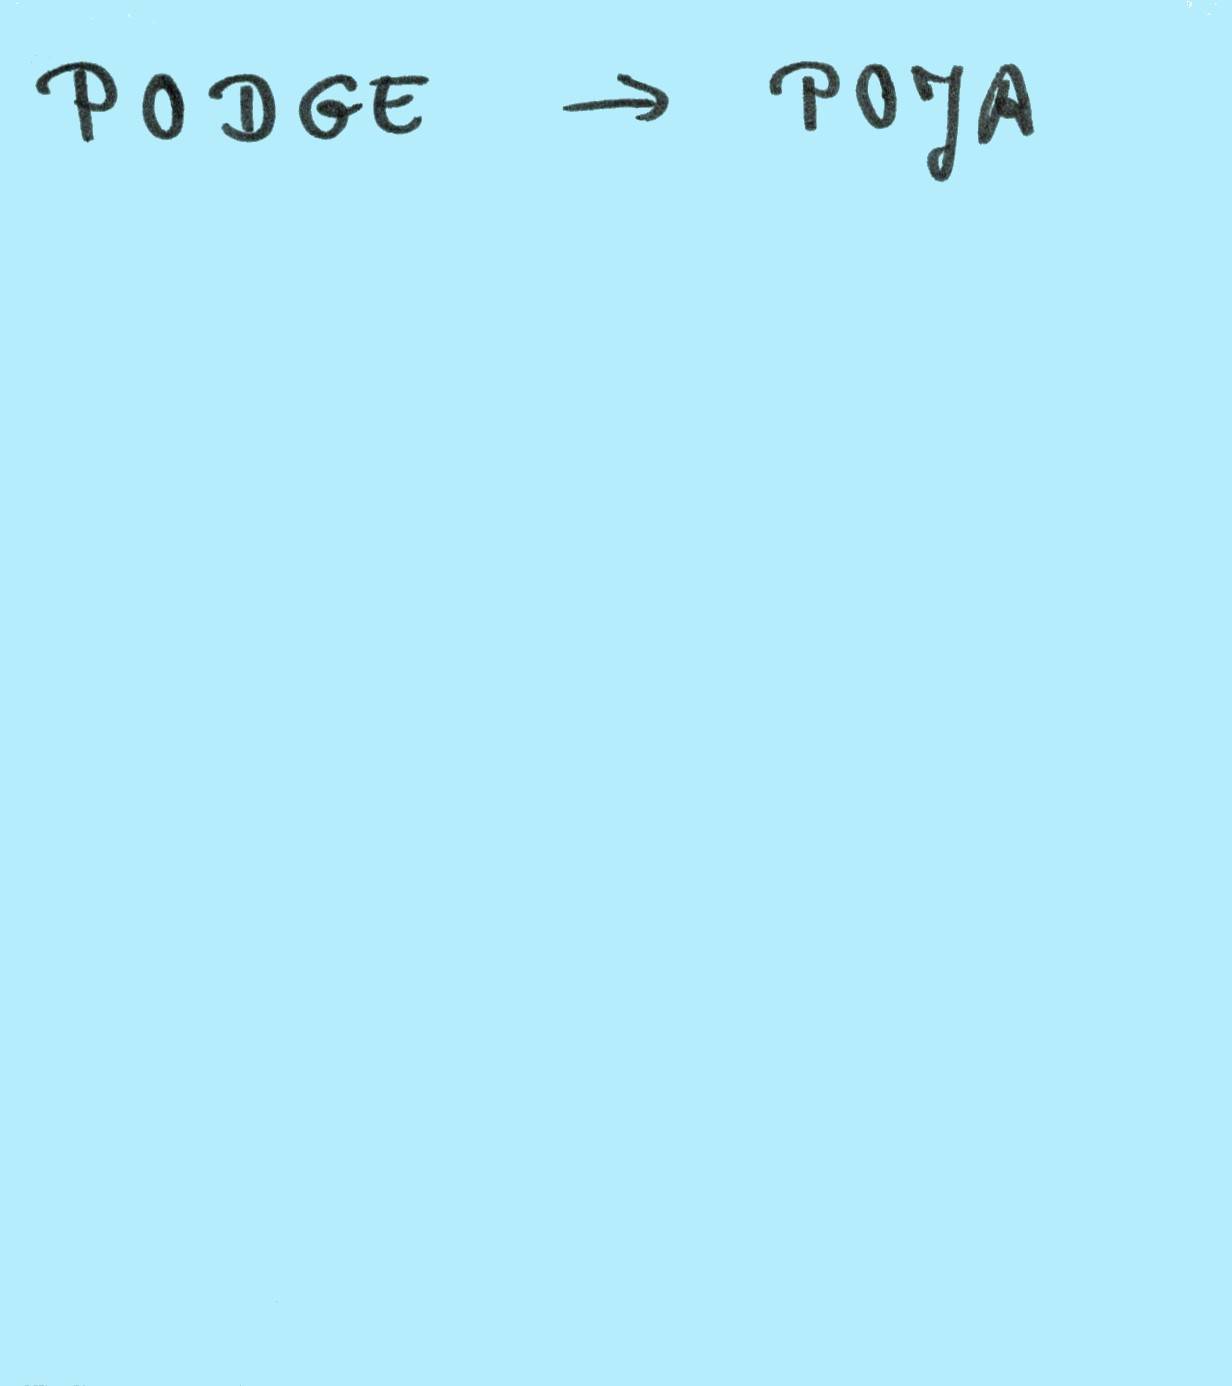 PODGE → POJA